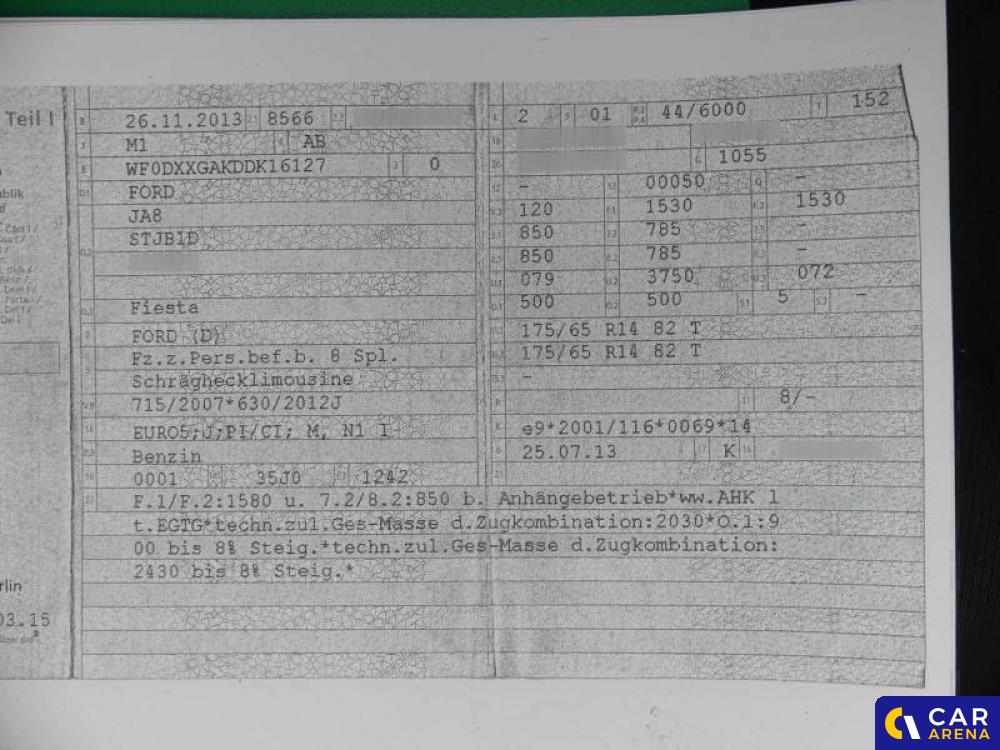 Teil I
26.11.2013 8566
M1 AB
WF0DXXGAKDDK16127 0
FORD
JA8
STJB1D
Fiesta
FORD (D)
Fz.z.Pers.bef.b. 8 Spl.
Schräghecklimousine
715/2007*630/2012J
EURO5;J;PI/CI; M, N1 I
Benzin
0001 35J0 1242
2 01 44/6000 152
1055
- 00050 -
120 1530 1530
850 785 -
850 785 -
079 3750 072
500 500 5 -
175/65 R14 82 T
175/65 R14 82 T
-
8/-
e9*2001/116*0069*14
25.07.13 K
F.1/F.2:1580 u. 7.2/8.2:850 b. Anhängebetrieb*ww.AHK l
t.EGTG*techn.zul.Ges-Masse d.Zugkombination:2030*O.1:9
00 bis 8% Steig.*techn.zul.Ges-Masse d.Zugkombination:
2430 bis 8% Steig.*
03.15
CAR
ARENA